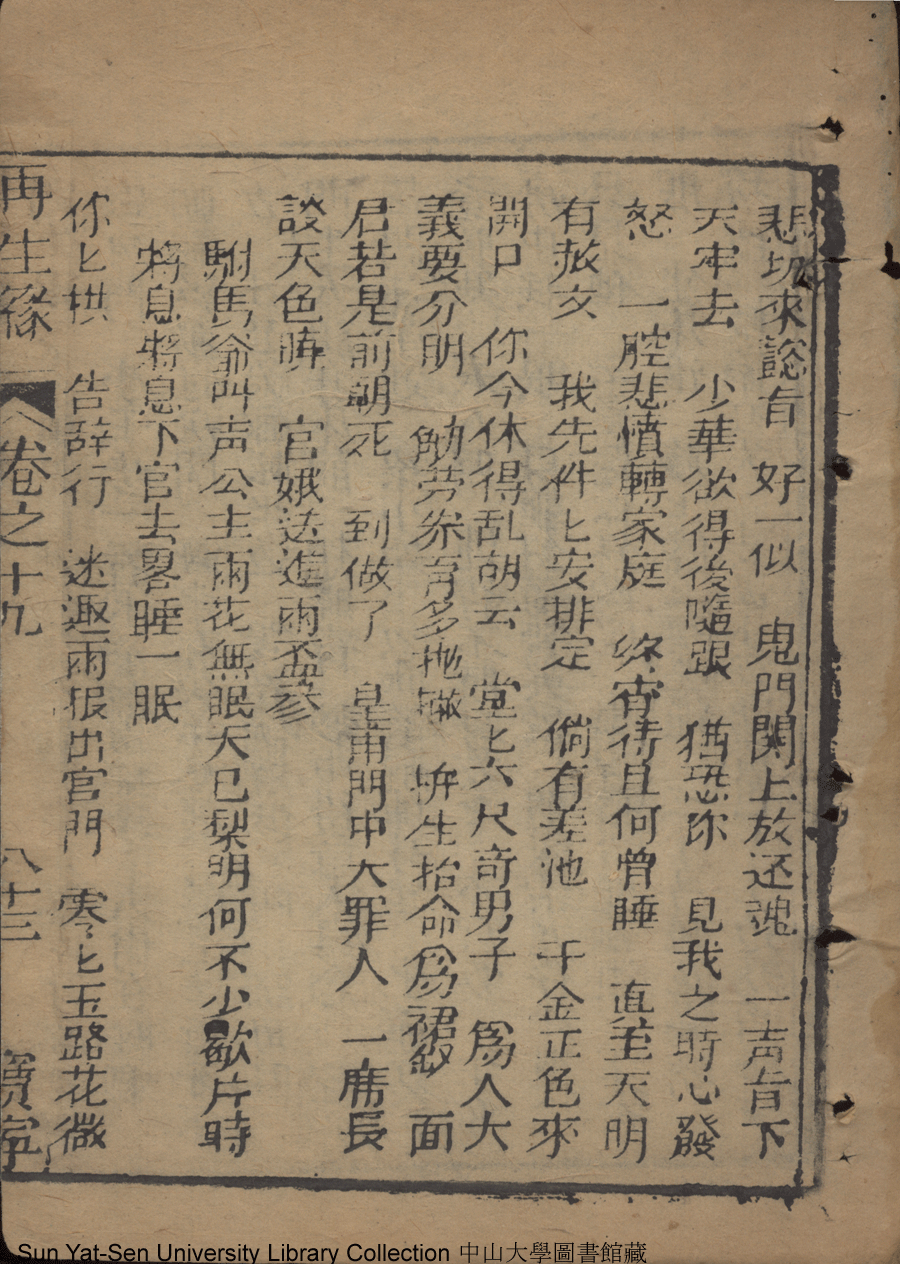 悲切來懿旨　好一似　鬼門関上放还魂　一声旨下
天牢去　少華欲得後隨跟　猶恐你　見我之時心發
怒　一腔悲憤轉家庭　終宵待旦何曾睡　直至天明
有赦文　我先件匕安排定　倘有差池　千金正色來
開口　你今休得乱胡云　堂匕六尺奇男子　為人大
義要分明　劬劳养育多抛撇　拚生抬命為裙釵　面
君若是前朝死　到做了　皇甫門中大罪人　一席長
談天色晴　官娥送進雨盃參
駙馬爺叫声公主雨花無眠天已梨明何不少歇片時
將息將息下官去畧睡一眠
你匕拱　告辞行　迷趣雨报出宫門　零匕玉路花微
再生緣　卷之十九　八十三　寳寧
Sun Yat-Sen University Library Collection 中山大學圖書館藏